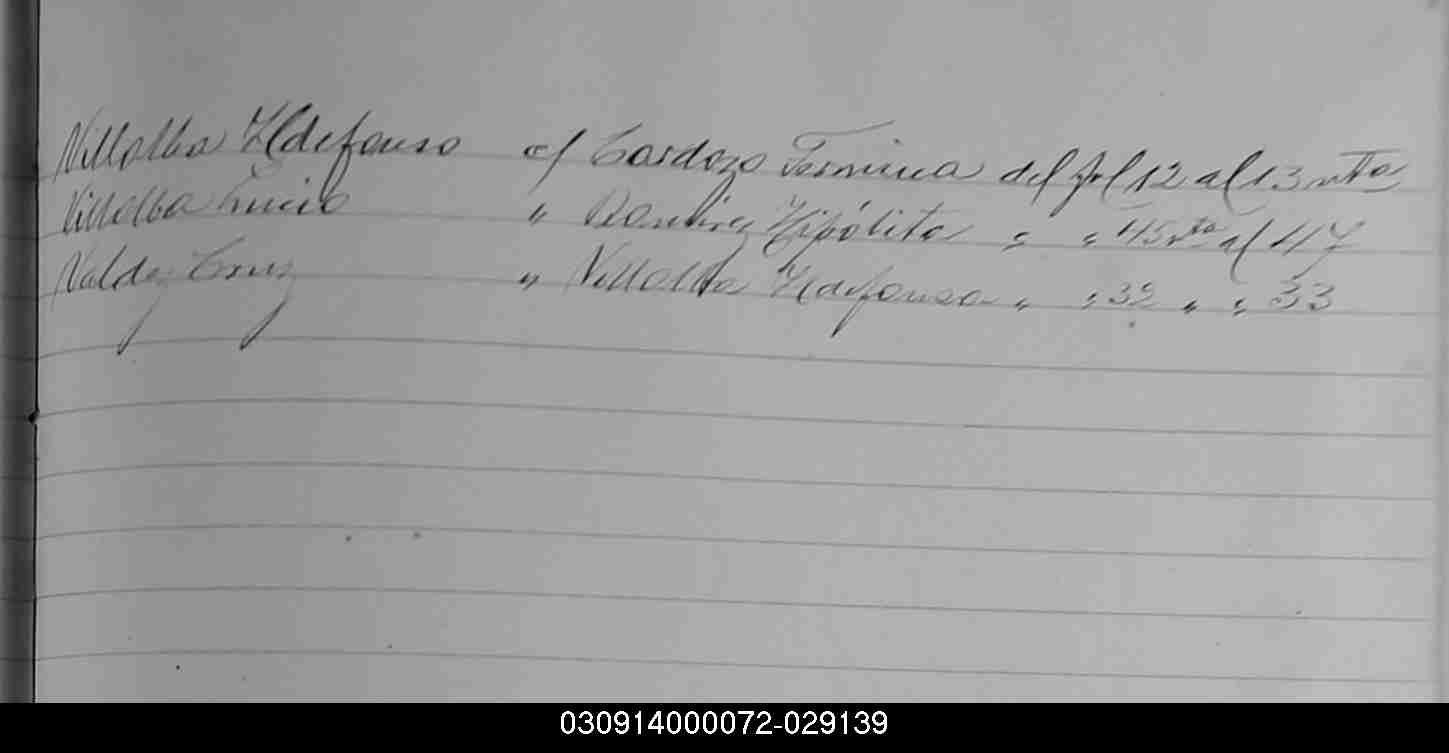 Villalba Ildefonso c/ Cardozo Fermina del fol 12 al 13 vta
Villalba Lucio " Ramírez Hipólita " " 45 vta al 47
Valdez Cruz " Villalba Ildefonso " " 32 " " 33
030914000072-029139